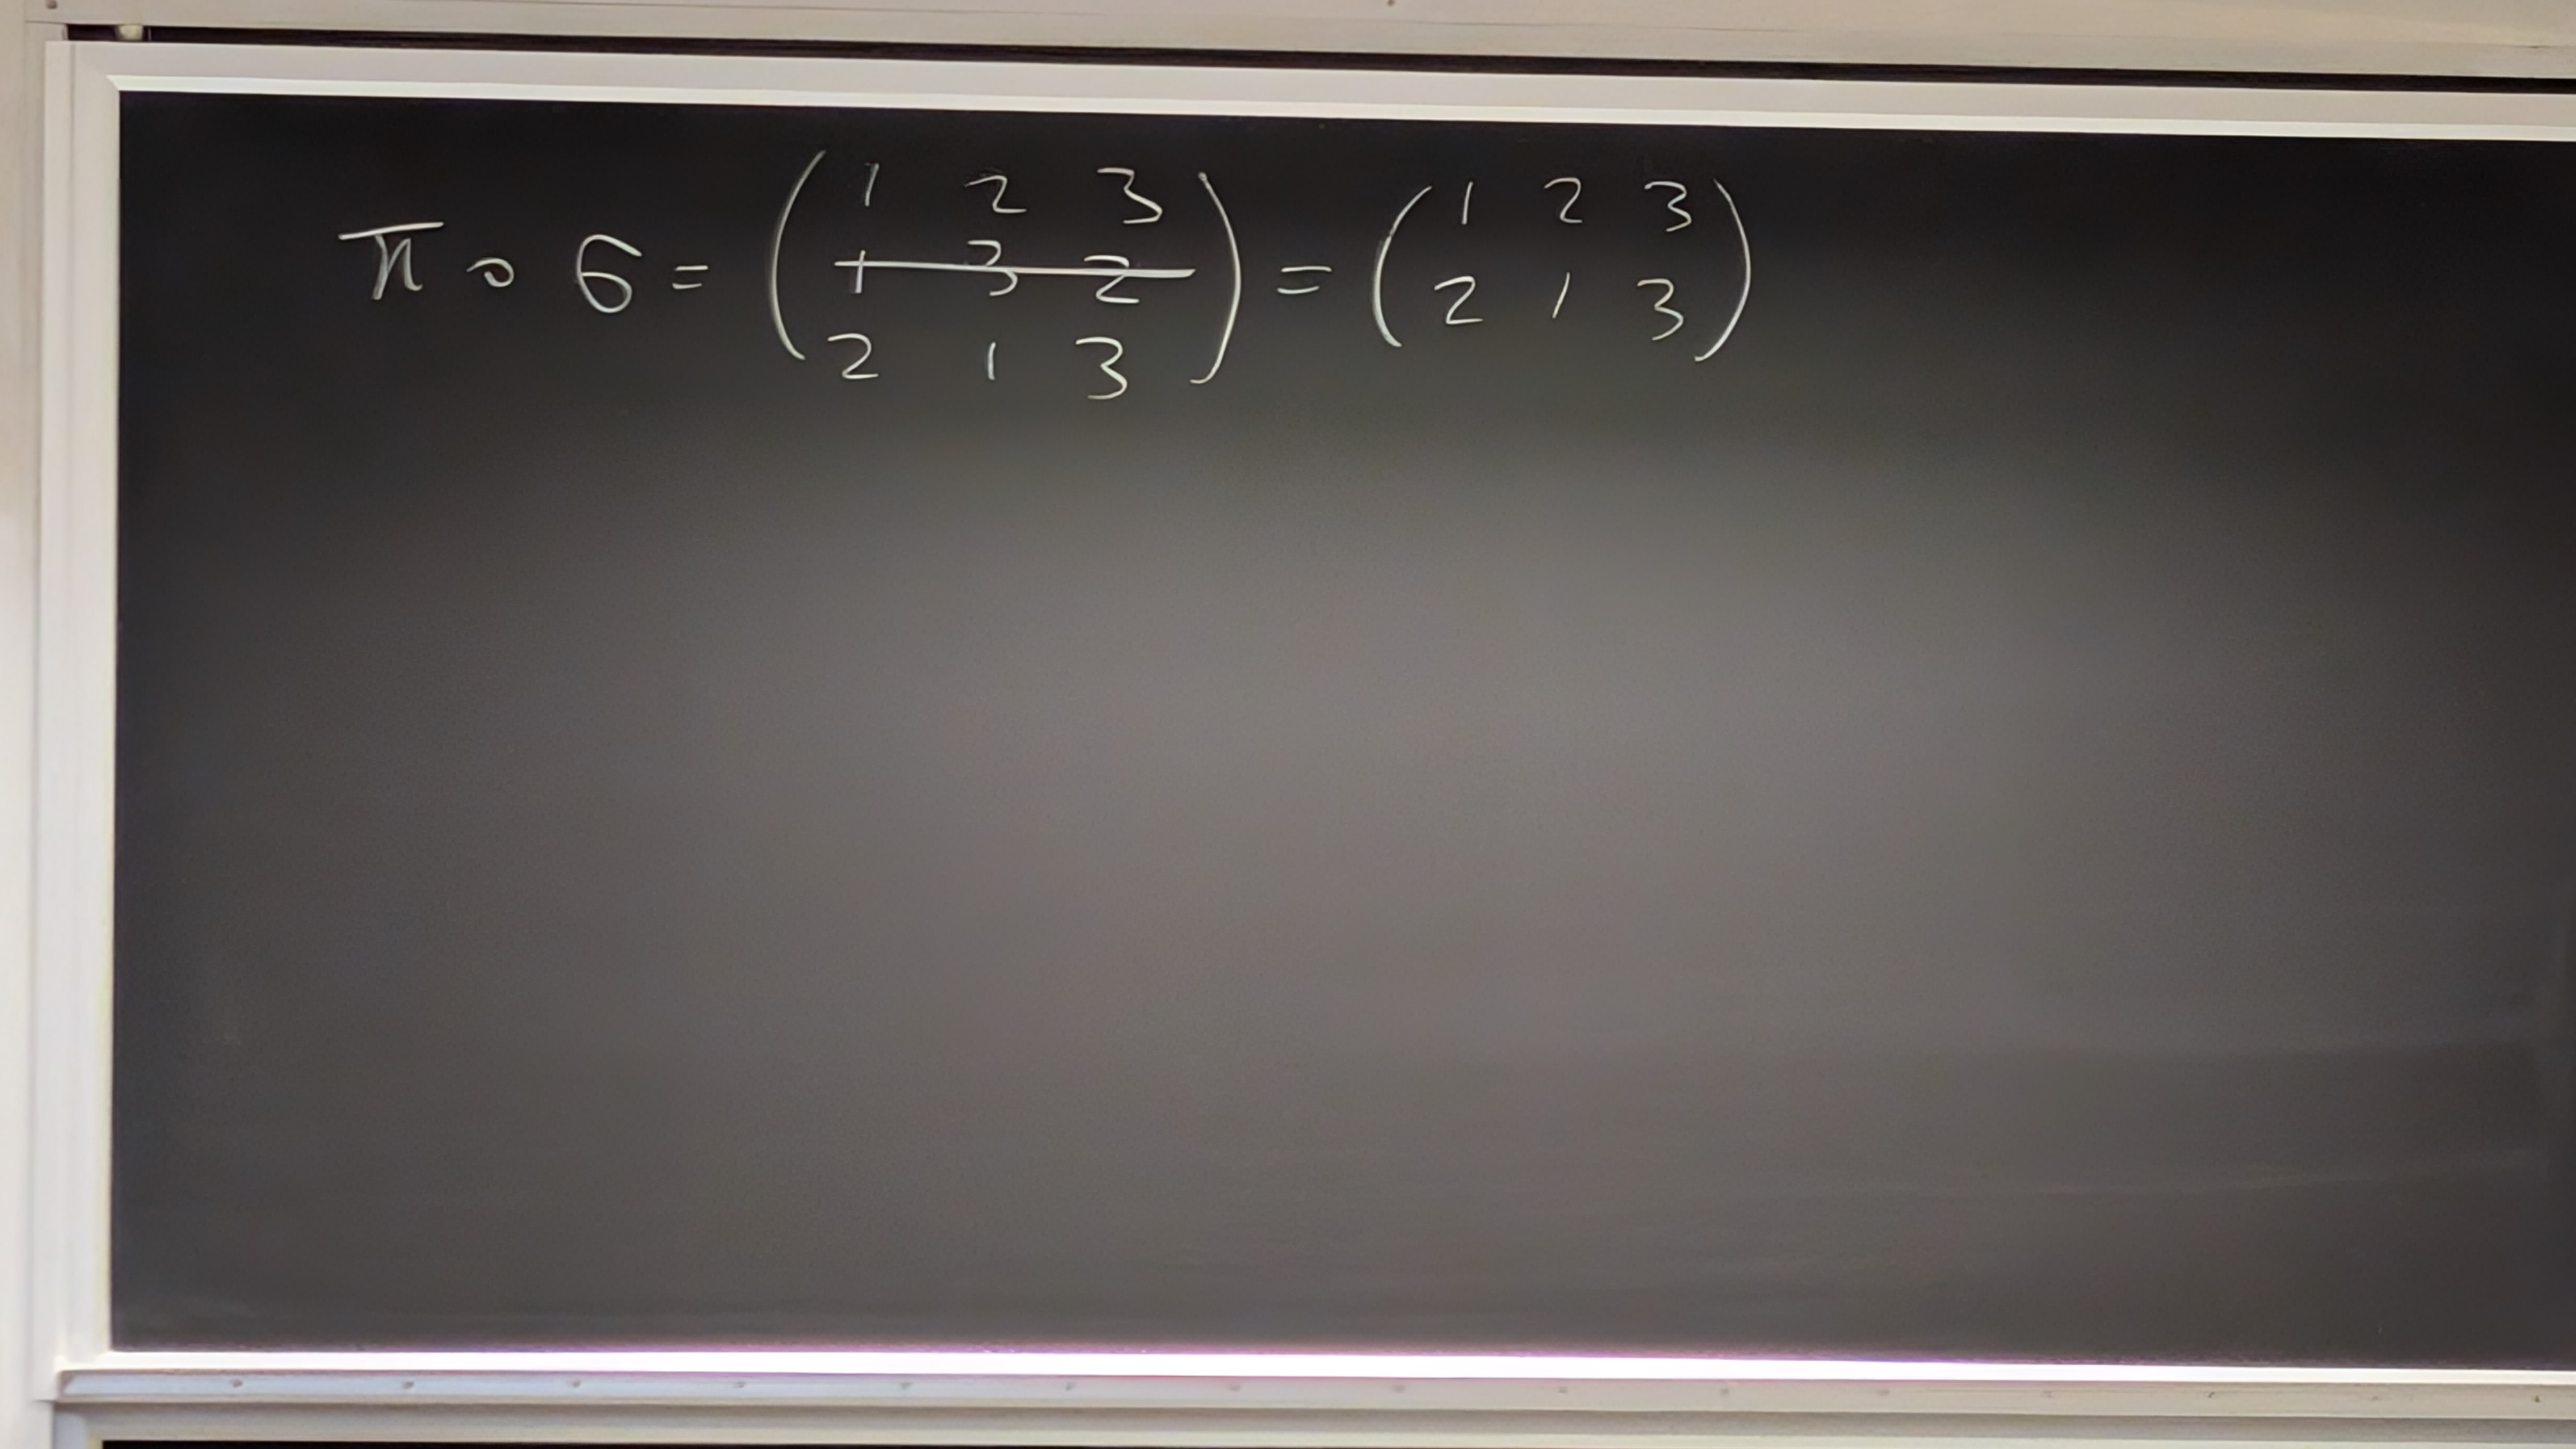 π ∘ σ = ( 1 2 3 / 1 3 2 / 2 1 3 ) = ( 1 2 3 / 2 1 3 )